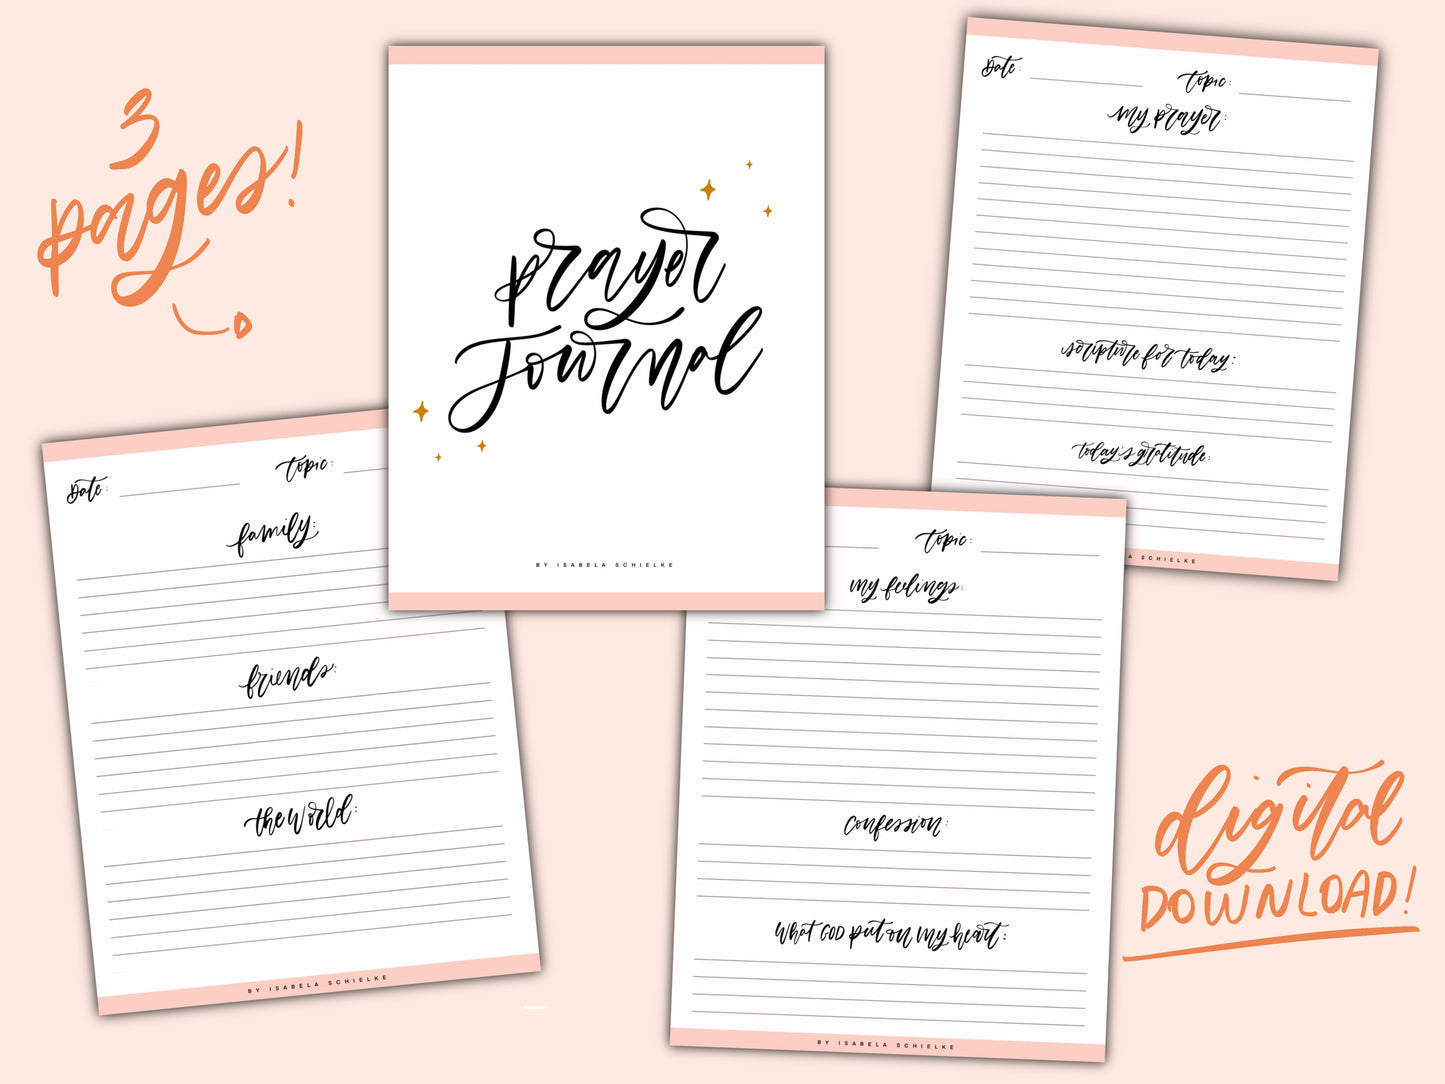 3
pages!
prayer
Journal
BY ISABELA SCHIELKE
Date: Topic:
my prayer:
scripture for today:
today's gratitude:
A SCHIELKE
Date: Topic:
family:
friends:
the world:
BY ISABELA SCHIELKE
Topic:
my feelings:
confession:
What GOD put on my heart:
BY ISABELA SCHIELKE
digital
DOWNLOAD!